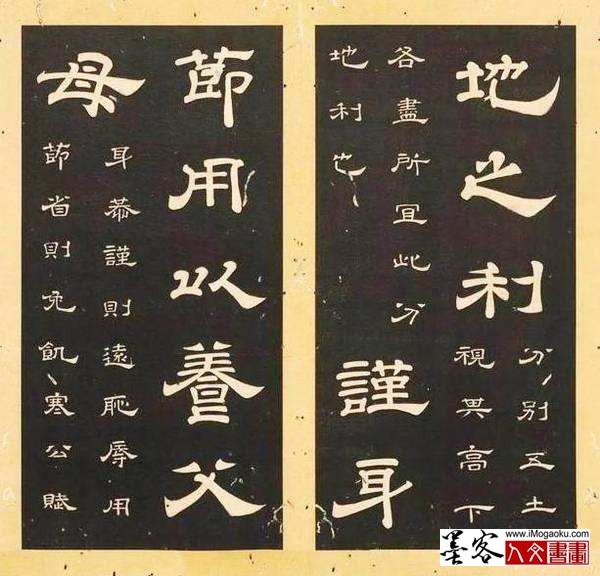 地之利
分別五土
視其高下
各盡所宜此分
地利也
謹身
節用以養父
母
身恭謹則遠恥辱用
節省則免飢寒公賦
墨客
www.iMogaoku.com
人文書畫